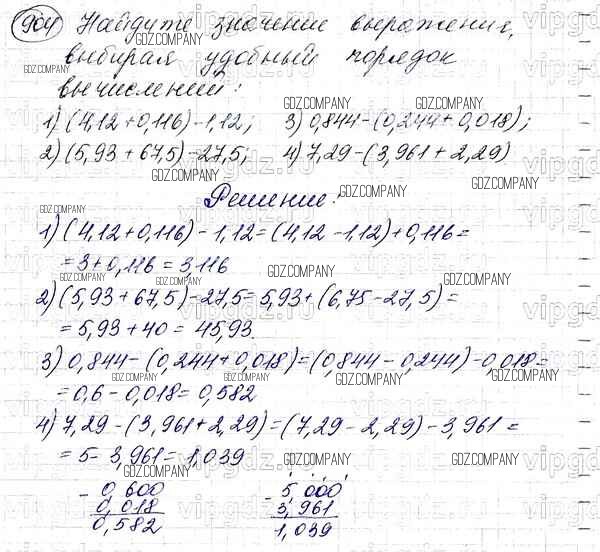 904 Найдите значение выражения,
выбирая удобный порядок
вычислений:
1) (4,12+0,116)-1,12; 3) 0,844-(0,244+0,018);
2) (5,93+67,5)-27,5; 4) 7,29-(3,961+2,29)
Решение:
1) (4,12+0,116)-1,12=(4,12-1,12)+0,116=
=3+0,116=3,116
2) (5,93+67,5)-27,5=5,93+(6,75-27,5)=
=5,93+40=45,93.
3) 0,844-(0,244+0,018)=(0,844-0,244)-0,018=
=0,6-0,018=0,582
4) 7,29-(3,961+2,29)=(7,29-2,29)-3,961=
=5-3,961=1,039
- 0,600 - 5,000
0,018 3,961
0,582 1,039